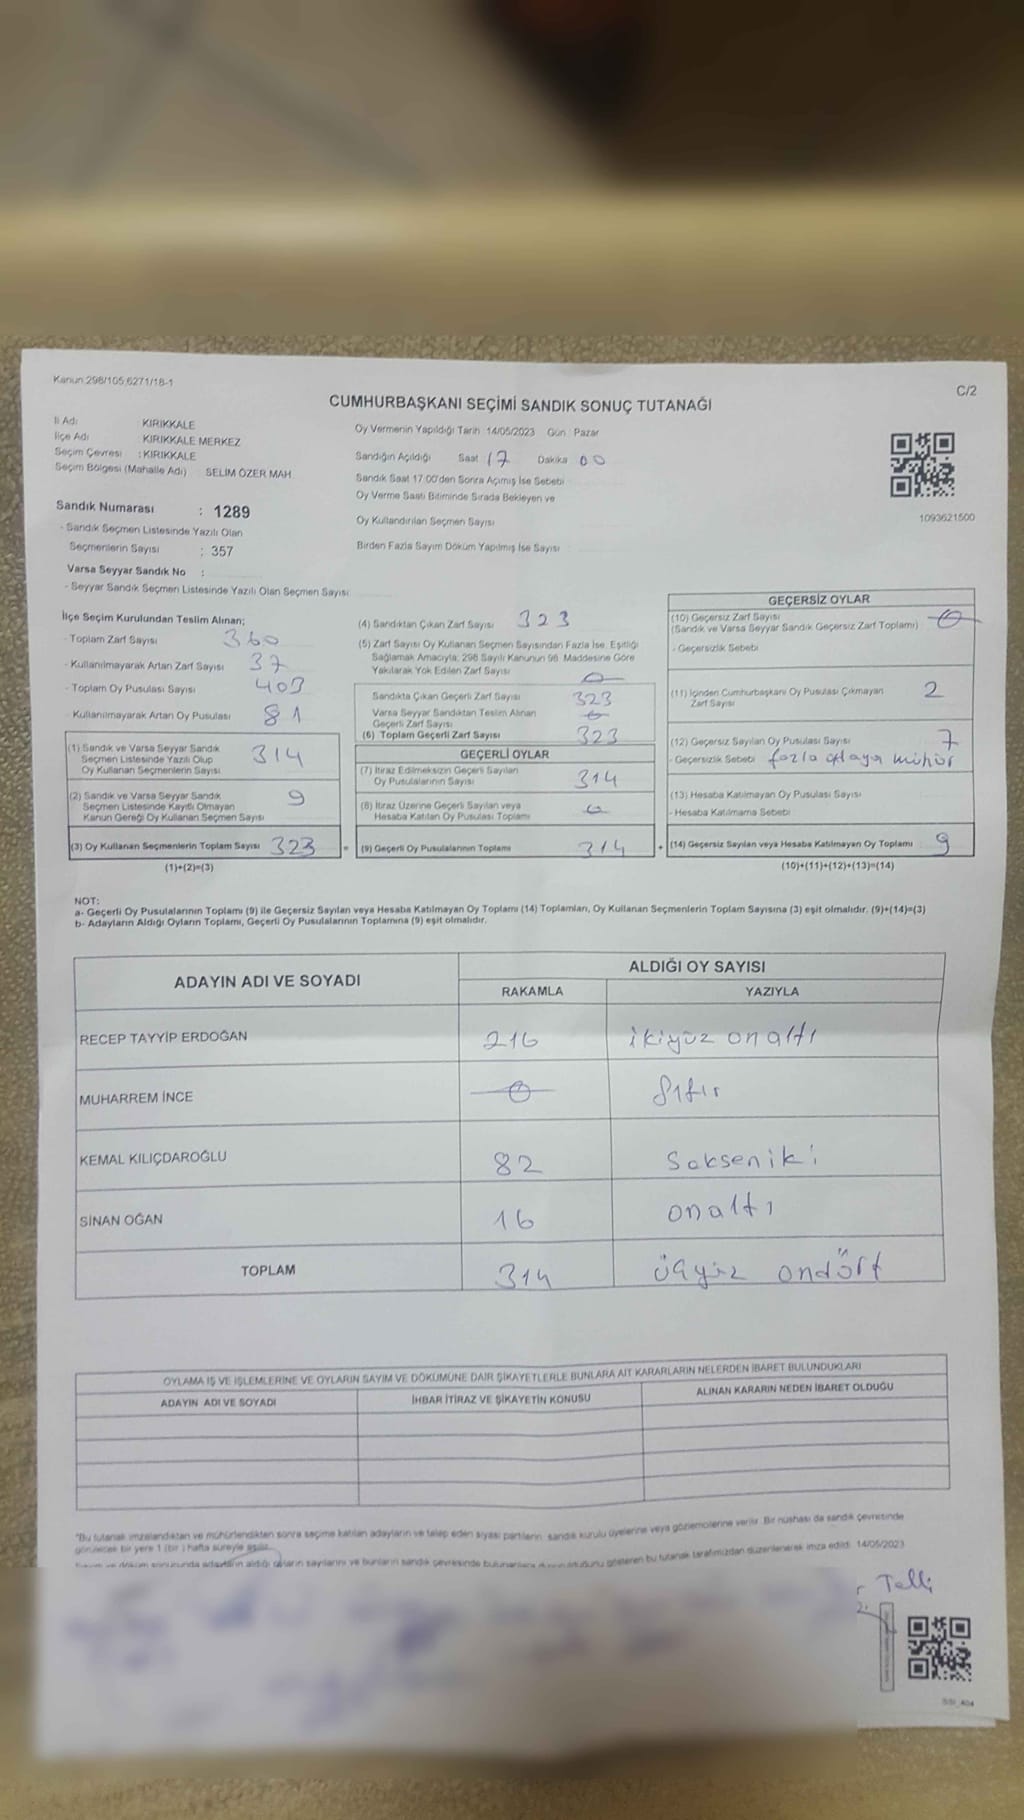 Kanun:298/105,6271/18-1
C/2
CUMHURBAŞKANI SEÇİMİ SANDIK SONUÇ TUTANAĞI
İl Adı : KIRIKKALE
İlçe Adı : KIRIKKALE MERKEZ
Seçim Çevresi : KIRIKKALE
Seçim Bölgesi (Mahalle Adı) : SELİM ÖZER MAH.
Sandık Numarası : 1289
- Sandık Seçmen Listesinde Yazılı Olan
Seçmenlerin Sayısı : 357
Varsa Seyyar Sandık No :
- Seyyar Sandık Seçmen Listesinde Yazılı Olan Seçmen Sayısı
Oy Vermenin Yapıldığı Tarih : 14/05/2023 Gün : Pazar
Sandığın Açıldığı Saat 17 Dakika 00
Sandık Saat 17:00'den Sonra Açımış İse Sebebi
Oy Verme Saati Bitiminde Sırada Bekleyen ve
Oy Kullandırılan Seçmen Sayısı
Birden Fazla Sayım Döküm Yapılmış İse Sayısı
1093621500
İlçe Seçim Kurulundan Teslim Alınan;
- Toplam Zarf Sayısı 360
- Kullanılmayarak Artan Zarf Sayısı 37
- Toplam Oy Pusulası Sayısı 403
- Kullanılmayarak Artan Oy Pusulası 81
(1) Sandık ve Varsa Seyyar Sandık
Seçmen Listesinde Yazılı Olup
Oy Kullanan Seçmenlerin Sayısı 314
(2) Sandık ve Varsa Seyyar Sandık
Seçmen Listesinde Kayıtlı Olmayan
Kanun Gereği Oy Kullanan Seçmen Sayısı 9
(3) Oy Kullanan Seçmenlerin Toplam Sayısı 323
(1)+(2)=(3)
(4) Sandıktan Çıkan Zarf Sayısı 323
(5) Zarf Sayısı Oy Kullanan Seçmen Sayısından Fazla İse, Eşitliği
Sağlamak Amacıyla; 298 Sayılı Kanunun 98. Maddesine Göre
Yakılarak Yok Edilen Zarf Sayısı 0
Sandıkta Çıkan Geçerli Zarf Sayısı 323
Varsa Seyyar Sandıktan Teslim Alınan
Geçerli Zarf Sayısı 0
(6) Toplam Geçerli Zarf Sayısı 323
GEÇERLİ OYLAR
(7) İtiraz Edilmeksizin Geçerli Sayılan
Oy Pusulalarının Sayısı 314
(8) İtiraz Üzerine Geçerli Sayılan veya
Hesaba Katılan Oy Pusulası Toplamı 0
= (9) Geçerli Oy Pusulalarının Toplamı 314
GEÇERSİZ OYLAR
(10) Geçersiz Zarf Sayısı
(Sandık ve Varsa Seyyar Sandık Geçersiz Zarf Toplamı) 0
- Geçersizlik Sebebi
(11) İçinden Cumhurbaşkanı Oy Pusulası Çıkmayan
Zarf Sayısı 2
(12) Geçersiz Sayılan Oy Pusulası Sayısı 7
- Geçersizlik Sebebi fazla adaya mühür
(13) Hesaba Katılmayan Oy Pusulası Sayısı
- Hesaba Katılmama Sebebi
+ (14) Geçersiz Sayılan veya Hesaba Katılmayan Oy Toplamı 9
(10)+(11)+(12)+(13)=(14)
NOT:
a- Geçerli Oy Pusulalarının Toplamı (9) ile Geçersiz Sayılan veya Hesaba Katılmayan Oy Toplamı (14) Toplamları, Oy Kullanan Seçmenlerin Toplam Sayısına (3) eşit olmalıdır. (9)+(14)=(3)
b- Adayların Aldığı Oyların Toplamı, Geçerli Oy Pusulalarının Toplamına (9) eşit olmalıdır.
ADAYIN ADI VE SOYADI
ALDIĞI OY SAYISI
RAKAMLA YAZIYLA
RECEP TAYYİP ERDOĞAN 216 ikiyüz onaltı
MUHARREM İNCE 0 sıfır
KEMAL KILIÇDAROĞLU 82 Seksen iki
SİNAN OĞAN 16 onaltı
TOPLAM 314 üçyüz ondört
OYLAMA İŞ VE İŞLEMLERİNE VE OYLARIN SAYIM VE DÖKÜMÜNE DAİR ŞİKAYETLERLE BUNLARA AİT KARARLARIN NELERDEN İBARET BULUNDUKLARI
ADAYIN ADI VE SOYADI
İHBAR İTİRAZ VE ŞİKAYETİN KONUSU
ALINAN KARARIN NEDEN İBARET OLDUĞU
"Bu tutanak imzalandıktan ve mühürlendikten sonra seçime katılan adayların ve talep eden siyasi partilerin, sandık kurulu üyelerine veya gözlemcilerine verilir. Bir nüshası da sandık çevresinde
görülecek bir yere 1 (bir) hafta süreyle asılır.
adayların aldığı oyların sayılarını ve bunların sandık çevresinde bu tutanak tarafımızdan düzenlenerek imza edildi. 14/05/2023
Telli